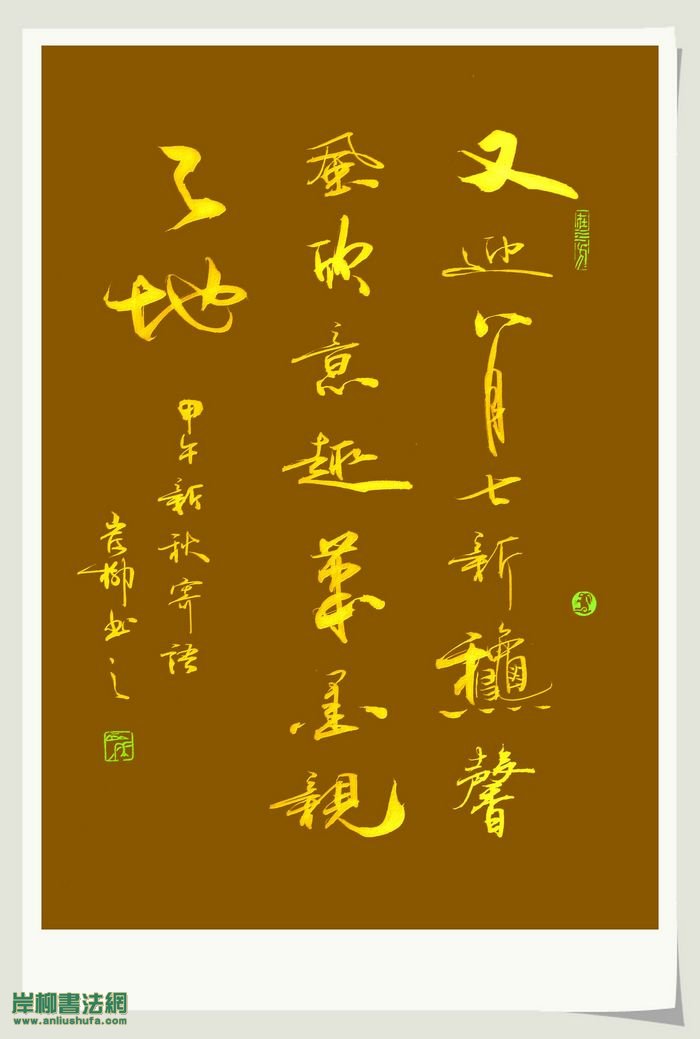 又迎八月七新龝馨
風欣意趣筆墨親
天地
甲午新秋寄語
岸柳书之
岸柳書法網
www.anliushufa.com